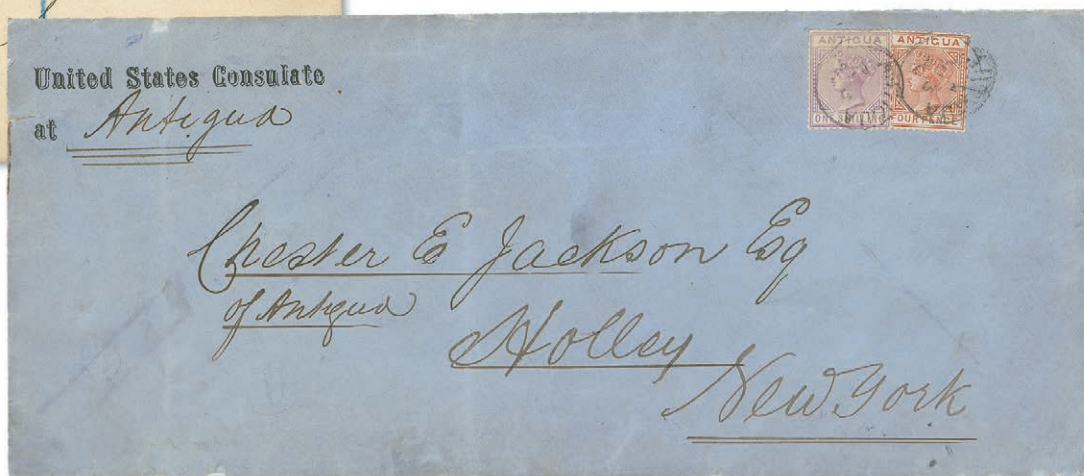 United States Consulate
at Antigua
ANTIGUA
ONE SHILLING
ANTIGUA
FOUR PENCE
Chester E Jackson Esq
of Antigua
Holley
New York